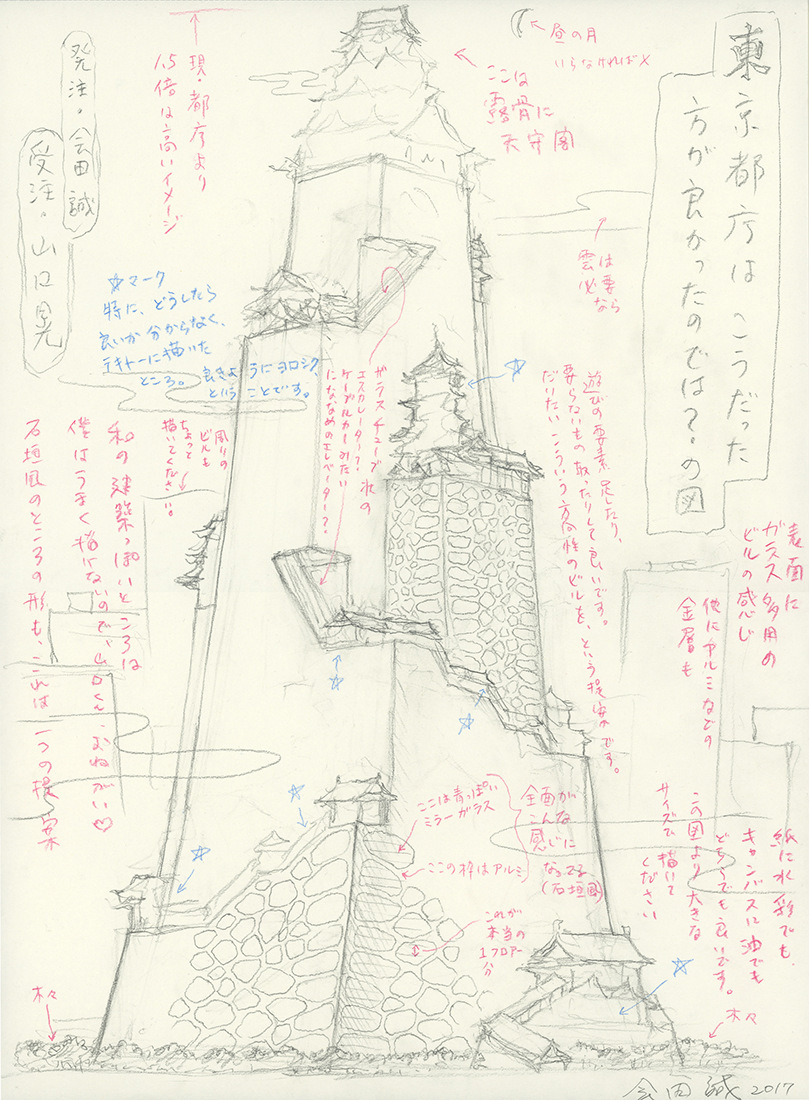 東京都庁はこうだった
方が良かったのでは？の図
発注・会田誠
受注・山口晃
昼の月
いらなければ×
ここは
露骨に
天守閣
現・都庁より
1.5倍は高いイメージ
雲は必要なら
☆マーク
特に、どうしたら
良いか分からなく、
テキトーに描いた
ところ。良きようにヨロシク
ということです。
ガラスチューブ状の
エスカレーター？
ケーブルカーみたい
にななめのエレベーター？
遊びの要素足したり、
要らないもの取ったりして良いです。
だいたいこういう方向性のビルを、という提案です。
周りの
ビルも
ちょっと
描いてください。
和の建築っぽいところは
僕はうまく描けないので、山口くんおねがい♡
石垣風のところの形も、これは一つの提案
表面に
ガラス多用の
ビルの感じ
他にアルミなどの
金属も
ここは青っぽい
ミラーガラス
ここの枠はアルミ
全面が
こんな
感じに
なってる
(石垣風)
これが
本当の
1フロアー
分
紙に水彩でも
キャンバスに油でも
どちらでも良いです。
この図より大きな
サイズで描いて
ください
木々
木々
会田誠 2017